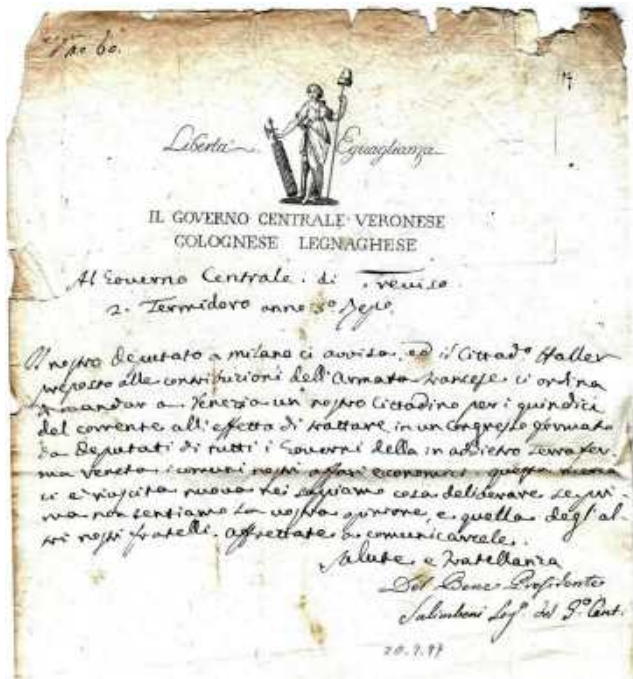 no. 60.
Libertà Eguaglianza
IL GOVERNO CENTRALE VERONESE
COLOGNESE LEGNAGHESE
Al Governo Centrale di Treviso
2. Termidoro anno 5º
Il nostro deputato a milano ci avvisa, ed il Cittadº Haller
preposto alle contribuzioni dell'Armata francese ci ordina
mandar a Venezia un nostro Cittadino per i quindici
del corrente all'effetto di trattare in un Congresso formato
da Deputati di tutti i Governi della in addietro terrafer
ma Veneta i comuni nostri affari economici
ci è riuscita nuova nei sappiamo cosa deliberare se pri
ma non sentiamo la vostra opinione, e quella degl'al
tri nostri fratelli. affrettate a comunicarcele.
Salute e Fratellanza
Del Bene Presidente
Salimbeni Segº del Gº Cent.
20.7.97